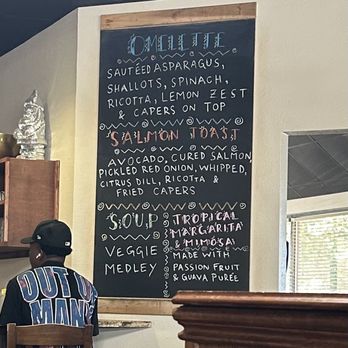 OMELETTE
SAUTÉED ASPARAGUS,
SHALLOTS, SPINACH,
RICOTTA, LEMON ZEST
& CAPERS ON TOP
SALMON TOAST
AVOCADO, CURED SALMON
PICKLED RED ONION, WHIPPED,
CITRUS DILL, RICOTTA &
FRIED CAPERS
SOUP
VEGGIE
MEDLEY
TROPICAL
MARGARITA
& MIMOSA
MADE WITH
PASSION FRUIT
& GUAVA PURÉE
OUT OF
MANY